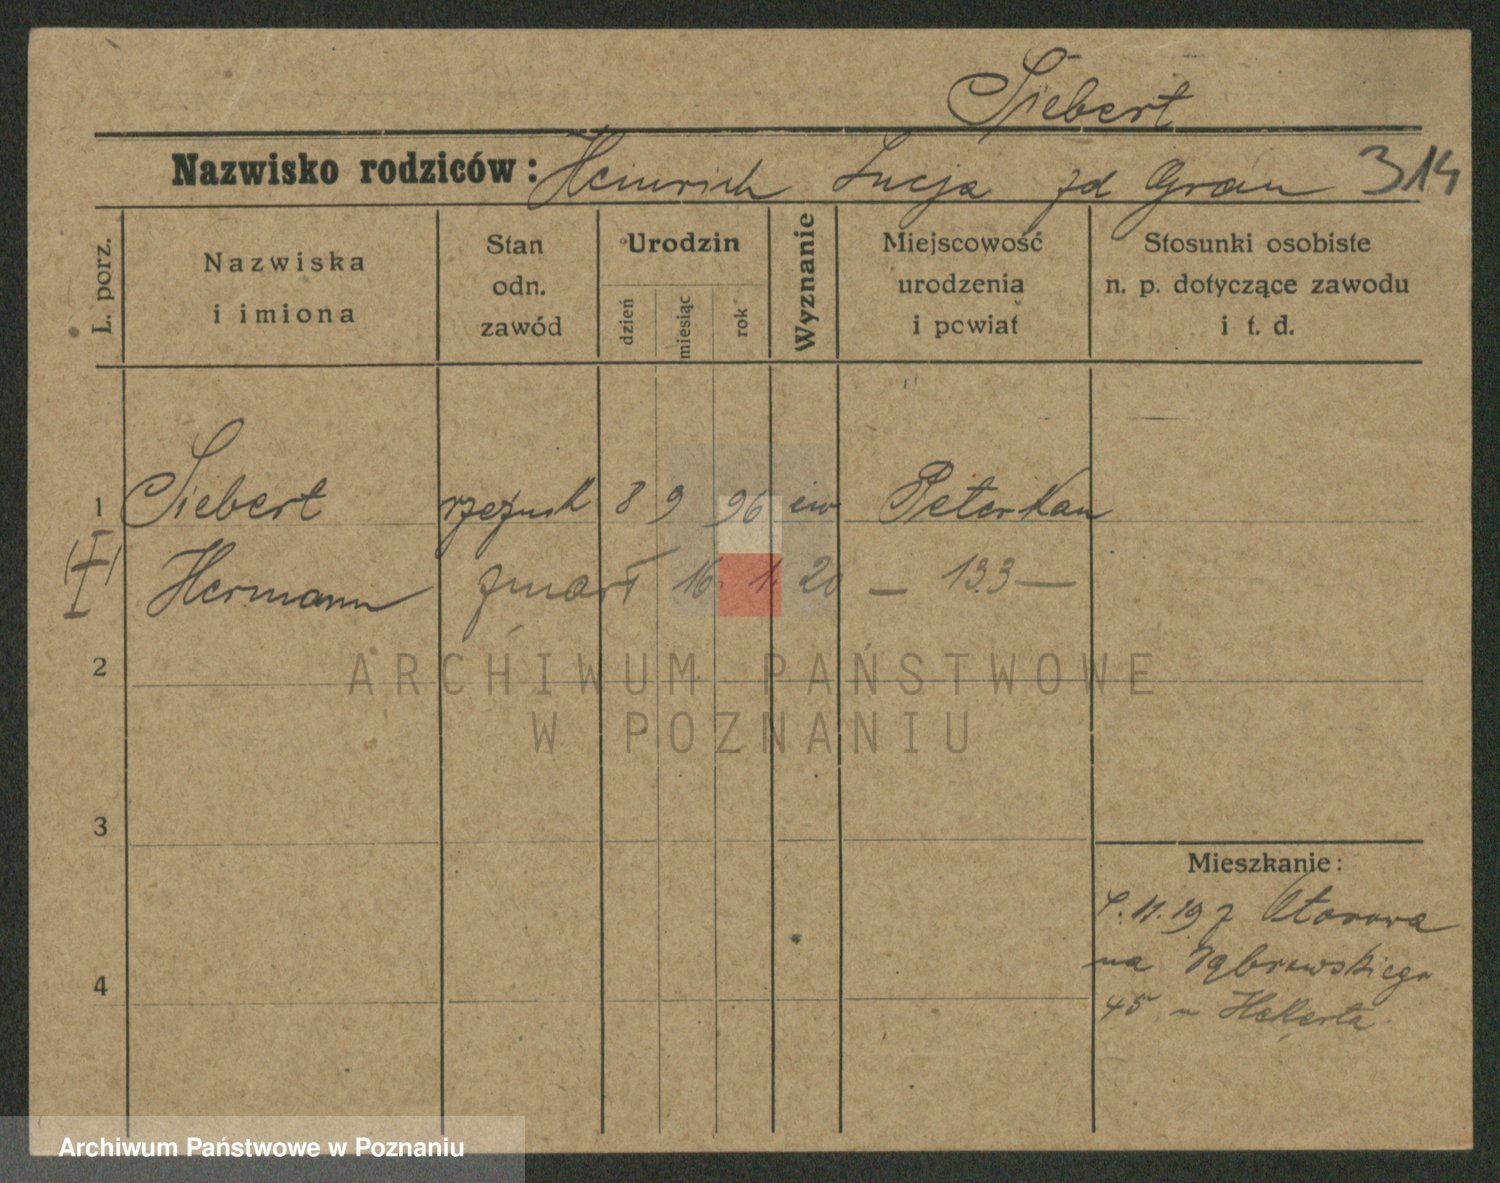 Siebert
Nazwisko rodziców: Heinrich Łucja zd Grau 314
L. porz.
Nazwiska
i imiona
Stan
odn.
zawód
Urodzin
dzień
miesiąc
rok
Wyznanie
Miejscowość
urodzenia
i powiat
Stosunki osobiste
n. p. dotyczące zawodu
i t. d.
1 Siebert rzeźnik 8 9 96 ew Peterkau
Hermann zmarł 16. 1. 20 — 133 —
2
ARCHIWUM PAŃSTWOWE
W POZNANIU
3
Mieszkanie:
11.19 z Otorowa
na Dąbrowskiego
4
45 u Hekerta
Archiwum Państwowe w Poznaniu